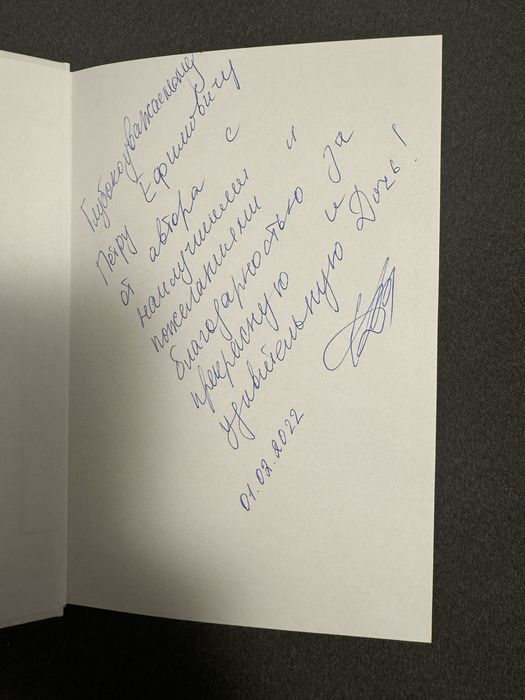 Глубокоуважаемому
Петру Ефимовичу
от автора с
наилучшими и
пожеланиями
благодарностью за
прекрасную и
удивительную Дочь!
01.02.2022